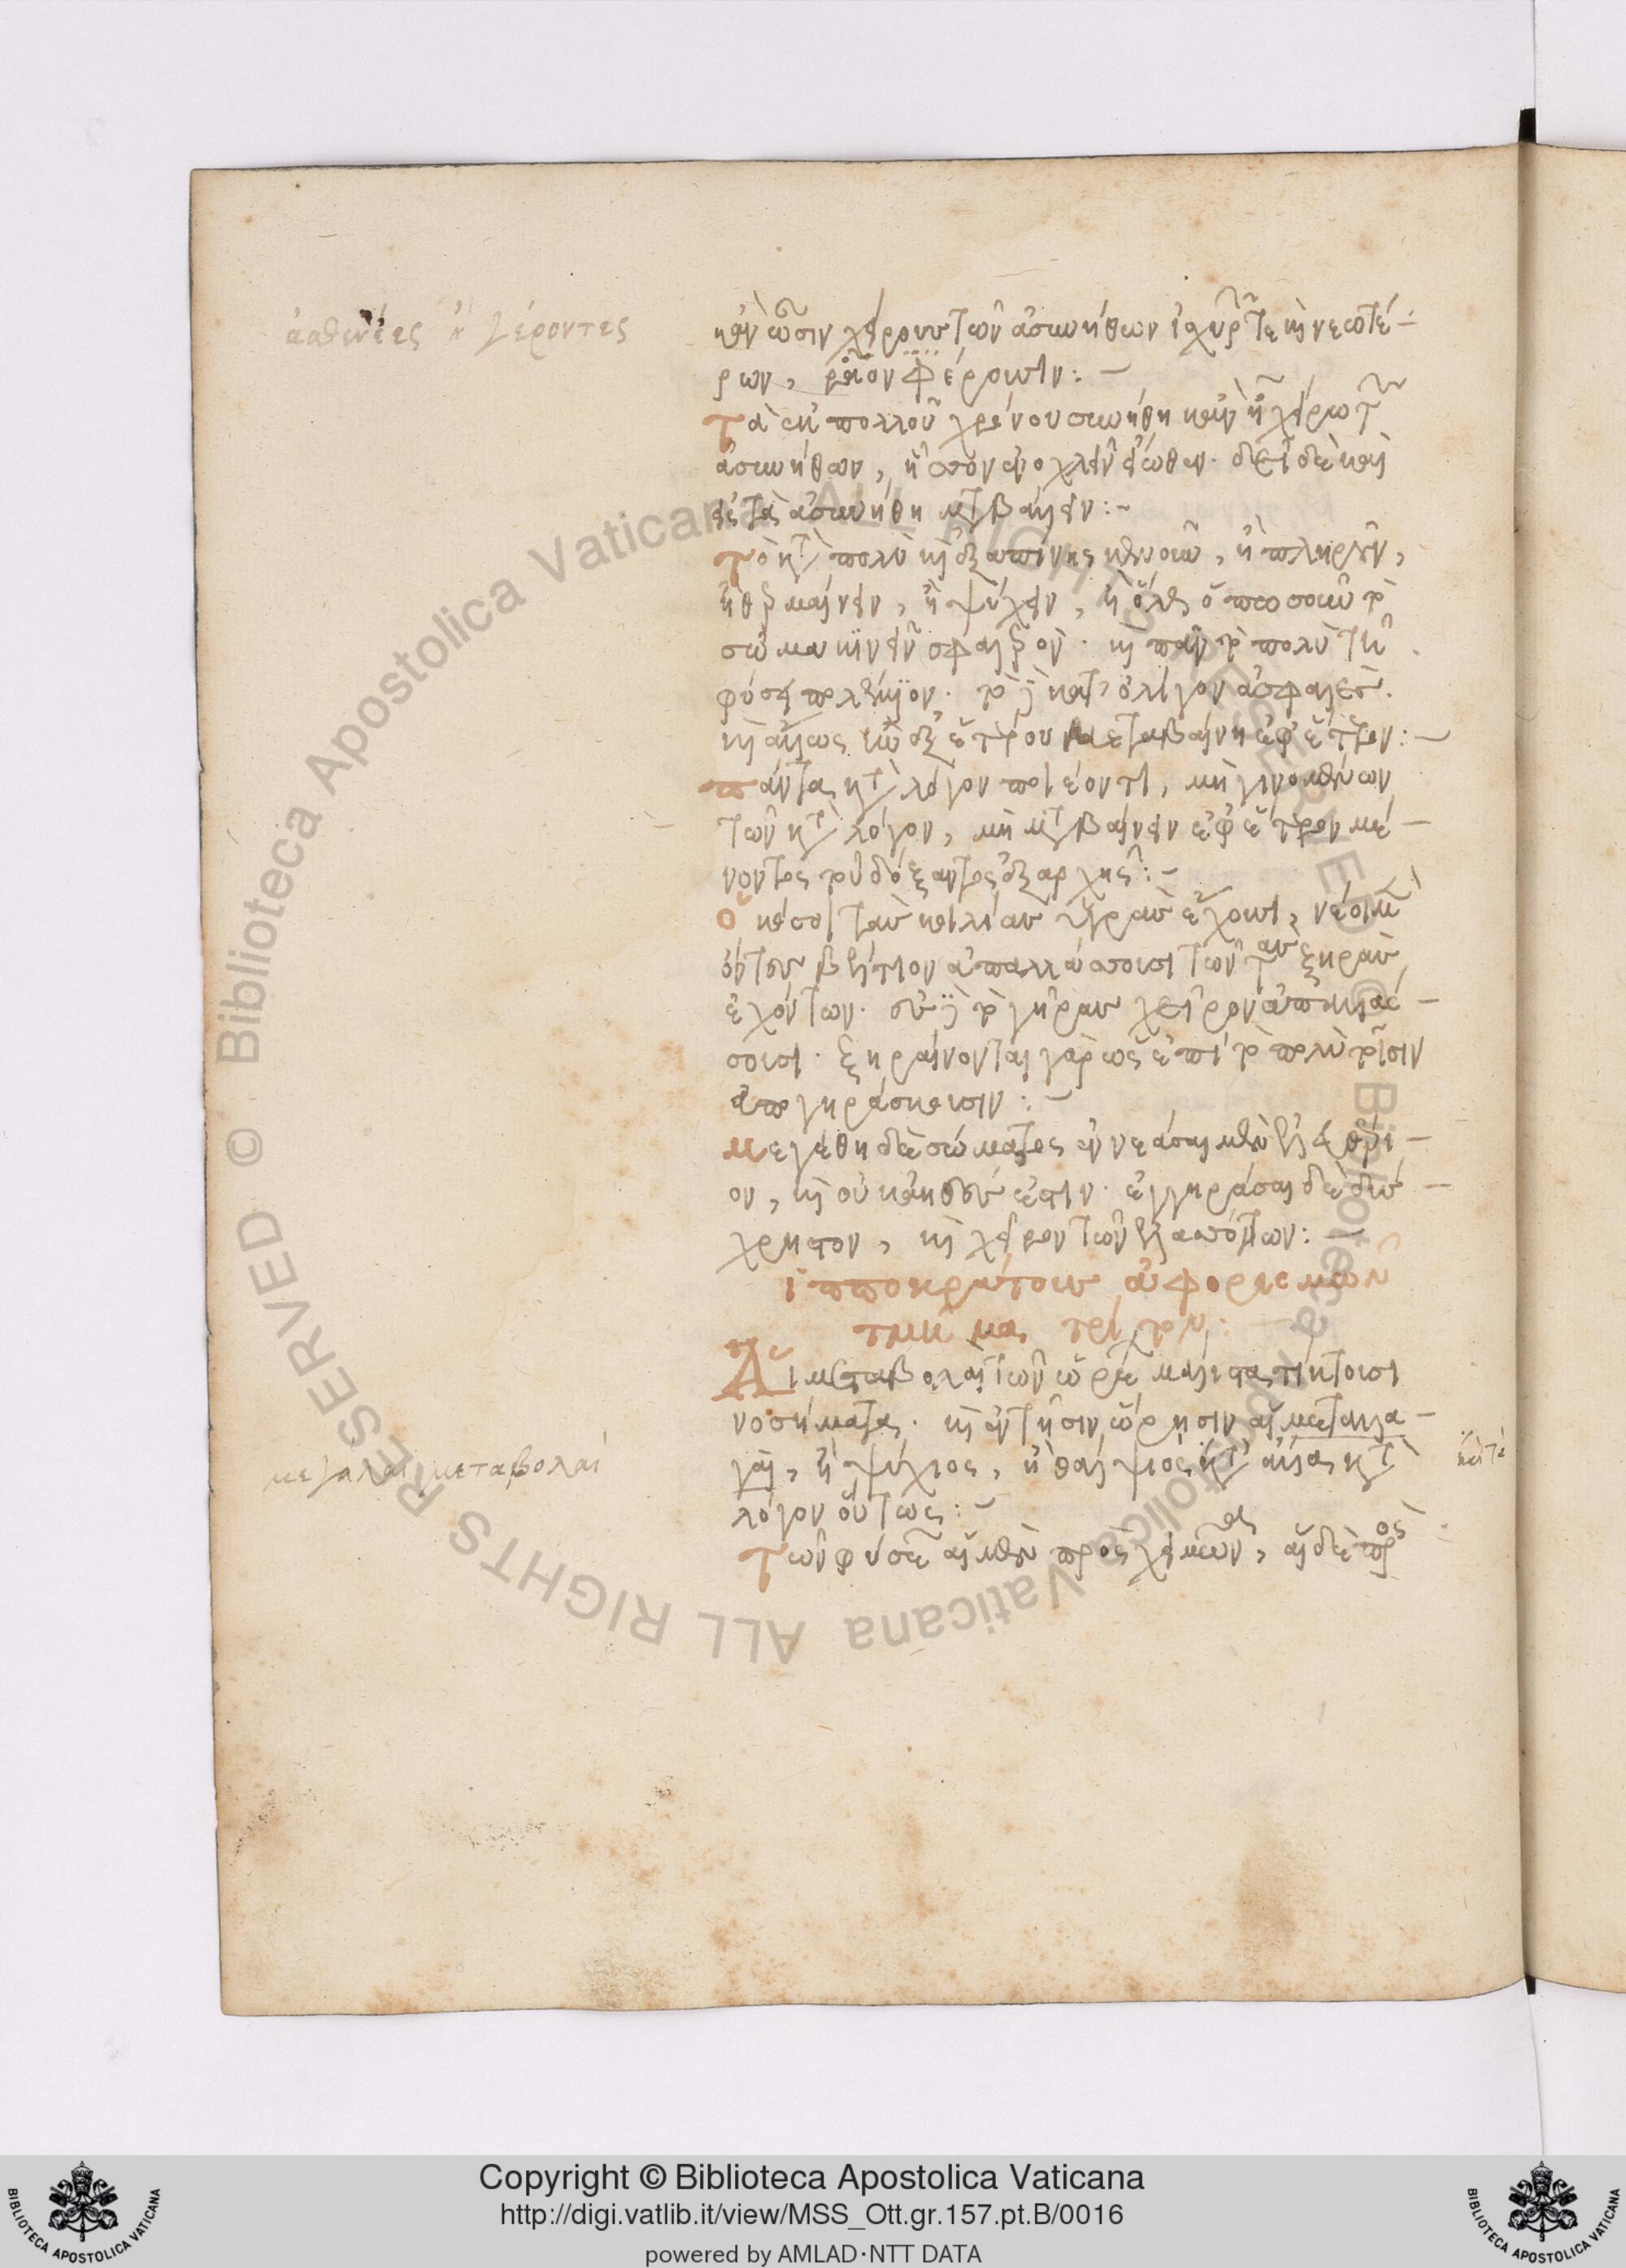 ἀσθενέες ἢ γέροντες
κἂν ὦσιν χείρους τῶν ἀσυνήθων ἰσχυρῶν τε καὶ νεωτέ-
ρων, ῥᾶον φέρουσιν:-
τὰ ἐκ πολλοῦ χρόνου συνήθη κἂν ᾖ χείρω τῶν
ἀσυνήθων, ἧσσον ἐνοχλεῖν εἴωθεν. δεῖ δὲ καὶ
εἰς τὰ ἀσυνήθη μεταβάλλειν:-
τὸ κατὰ πολὺ καὶ ἐξαπίνης κενοῦν, ἢ πληροῦν,
ἢ θερμαίνειν, ἢ ψύχειν, ἢ ἄλλως ὁπωσοῦν τὸ
σῶμα κινεῖν σφαλερόν. καὶ πᾶν τὸ πολὺ τῇ
φύσει πολέμιον. τὸ δὲ κατ' ὀλίγον ἀσφαλές.
καὶ ἄλλως κἢν ἐξ ἑτέρου μεταβαίνῃ ἐφ' ἕτερον:-
πάντα κατὰ λόγον ποιέοντι, μὴ γινομένων
τῶν κατὰ λόγον, μὴ μεταβαίνειν ἐφ' ἕτερον μέ-
νοντος τοῦ δόξαντος ἐξ ἀρχῆς:-
ὁκόσοι τὰν κοιλίαν ὑγρὰν ἔχουσι, νέοι μὲν
ὄντες βέλτιον ἀπαλλάσσουσι τῶν τὰν ξηρὰν
ἐχόντων. ἐς δὲ τὸ γῆρας χεῖρον ἀπαλλάσ-
σουσι. ξηραίνονται γὰρ ὡς ἐπὶ τὸ πολὺ τοῖσιν
ἀπογηράσκουσιν:-
μεγέθη δὲ σώματος ἐννεάσαι μὲν ἐλευθέρι-
ον, καὶ οὐκ ἀηδές ἐστιν. ἐγγηράσαι δὲ δύσ-
χρηστον, καὶ χεῖρον τῶν ἐλασσόνων:-
ἱπποκράτους ἀφορισμῶν
τμῆμα τρίτον:-
Αἱ μεταβολαὶ τῶν ὡρέων μάλιστα τίκτουσι
νοσήματα. καὶ ἐν τῇσιν ὥρῃσιν αἱ μεγάλαι μεταλλα-
γαὶ, ἢ ψύξιος, ἢ θάλψιος, καὶ τἄλλα κατὰ
λόγον οὕτως:-
τῶν φυσέων αἱ μὲν πρὸς χειμῶνας, αἱ δὲ πρὸς
μεγάλαι μεταβολαὶ
Copyright © Biblioteca Apostolica Vaticana
http://digi.vatlib.it/view/MSS_Ott.gr.157.pt.B/0016
powered by AMLAD·NTT DATA
BIBLIOTECA APOSTOLICA VATICANA
BIBLIOTECA APOSTOLICA VATICANA
© Biblioteca Apostolica Vaticana ALL RIGHTS RESERVED
© Biblioteca Apostolica Vaticana ALL RIGHTS RESERVED